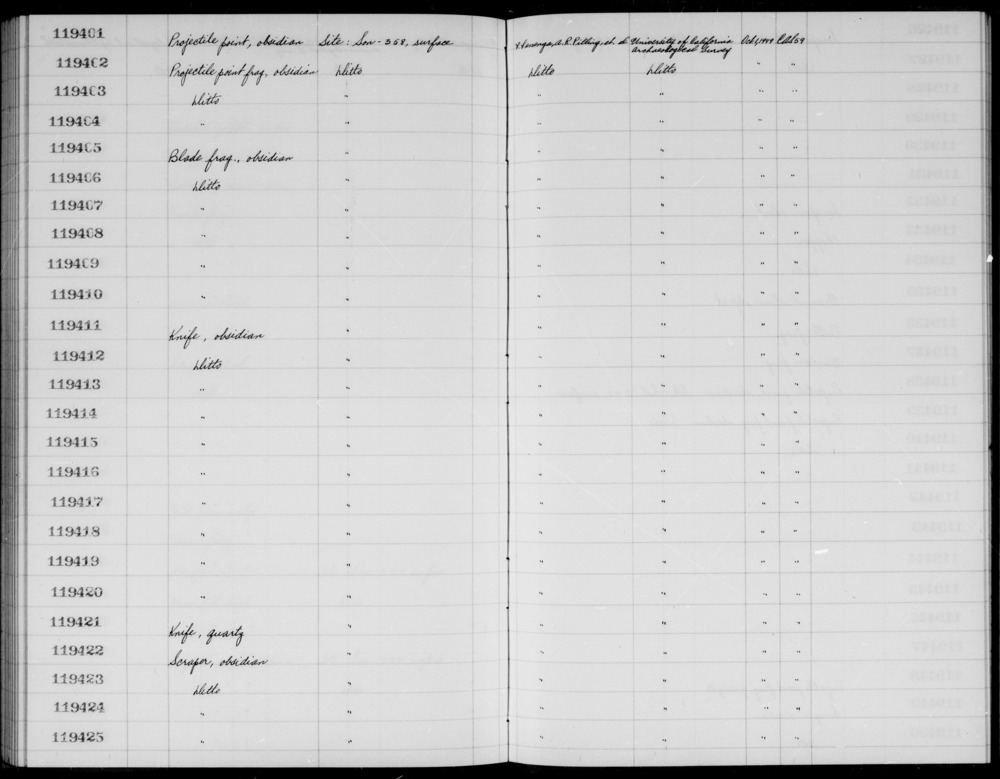 119401 Projectile point, obsidian Site: Son-358, surface A.R. Pilling, et al University of California Archaeological Survey Oct 1949 Cat 59
119402 Projectile point frag, obsidian ditto ditto ditto " "
119403 ditto " " " " "
119404 " " " " " "
119405 Blade frag., obsidian " " " " "
119406 ditto " " " " "
119407 " " " " " "
119408 " " " " " "
119409 " " " " " "
119410 " " " " " "
119411 Knife, obsidian " " " " "
119412 ditto " " " " "
119413 " " " " " "
119414 " " " " " "
119415 " " " " " "
119416 " " " " " "
119417 " " " " " "
119418 " " " " " "
119419 " " " " " "
119420 " " " " " "
119421 Knife, quartz " " " " "
119422 Scraper, obsidian " " " " "
119423 ditto " " " " "
119424 " " " " " "
119425 " " " " " "